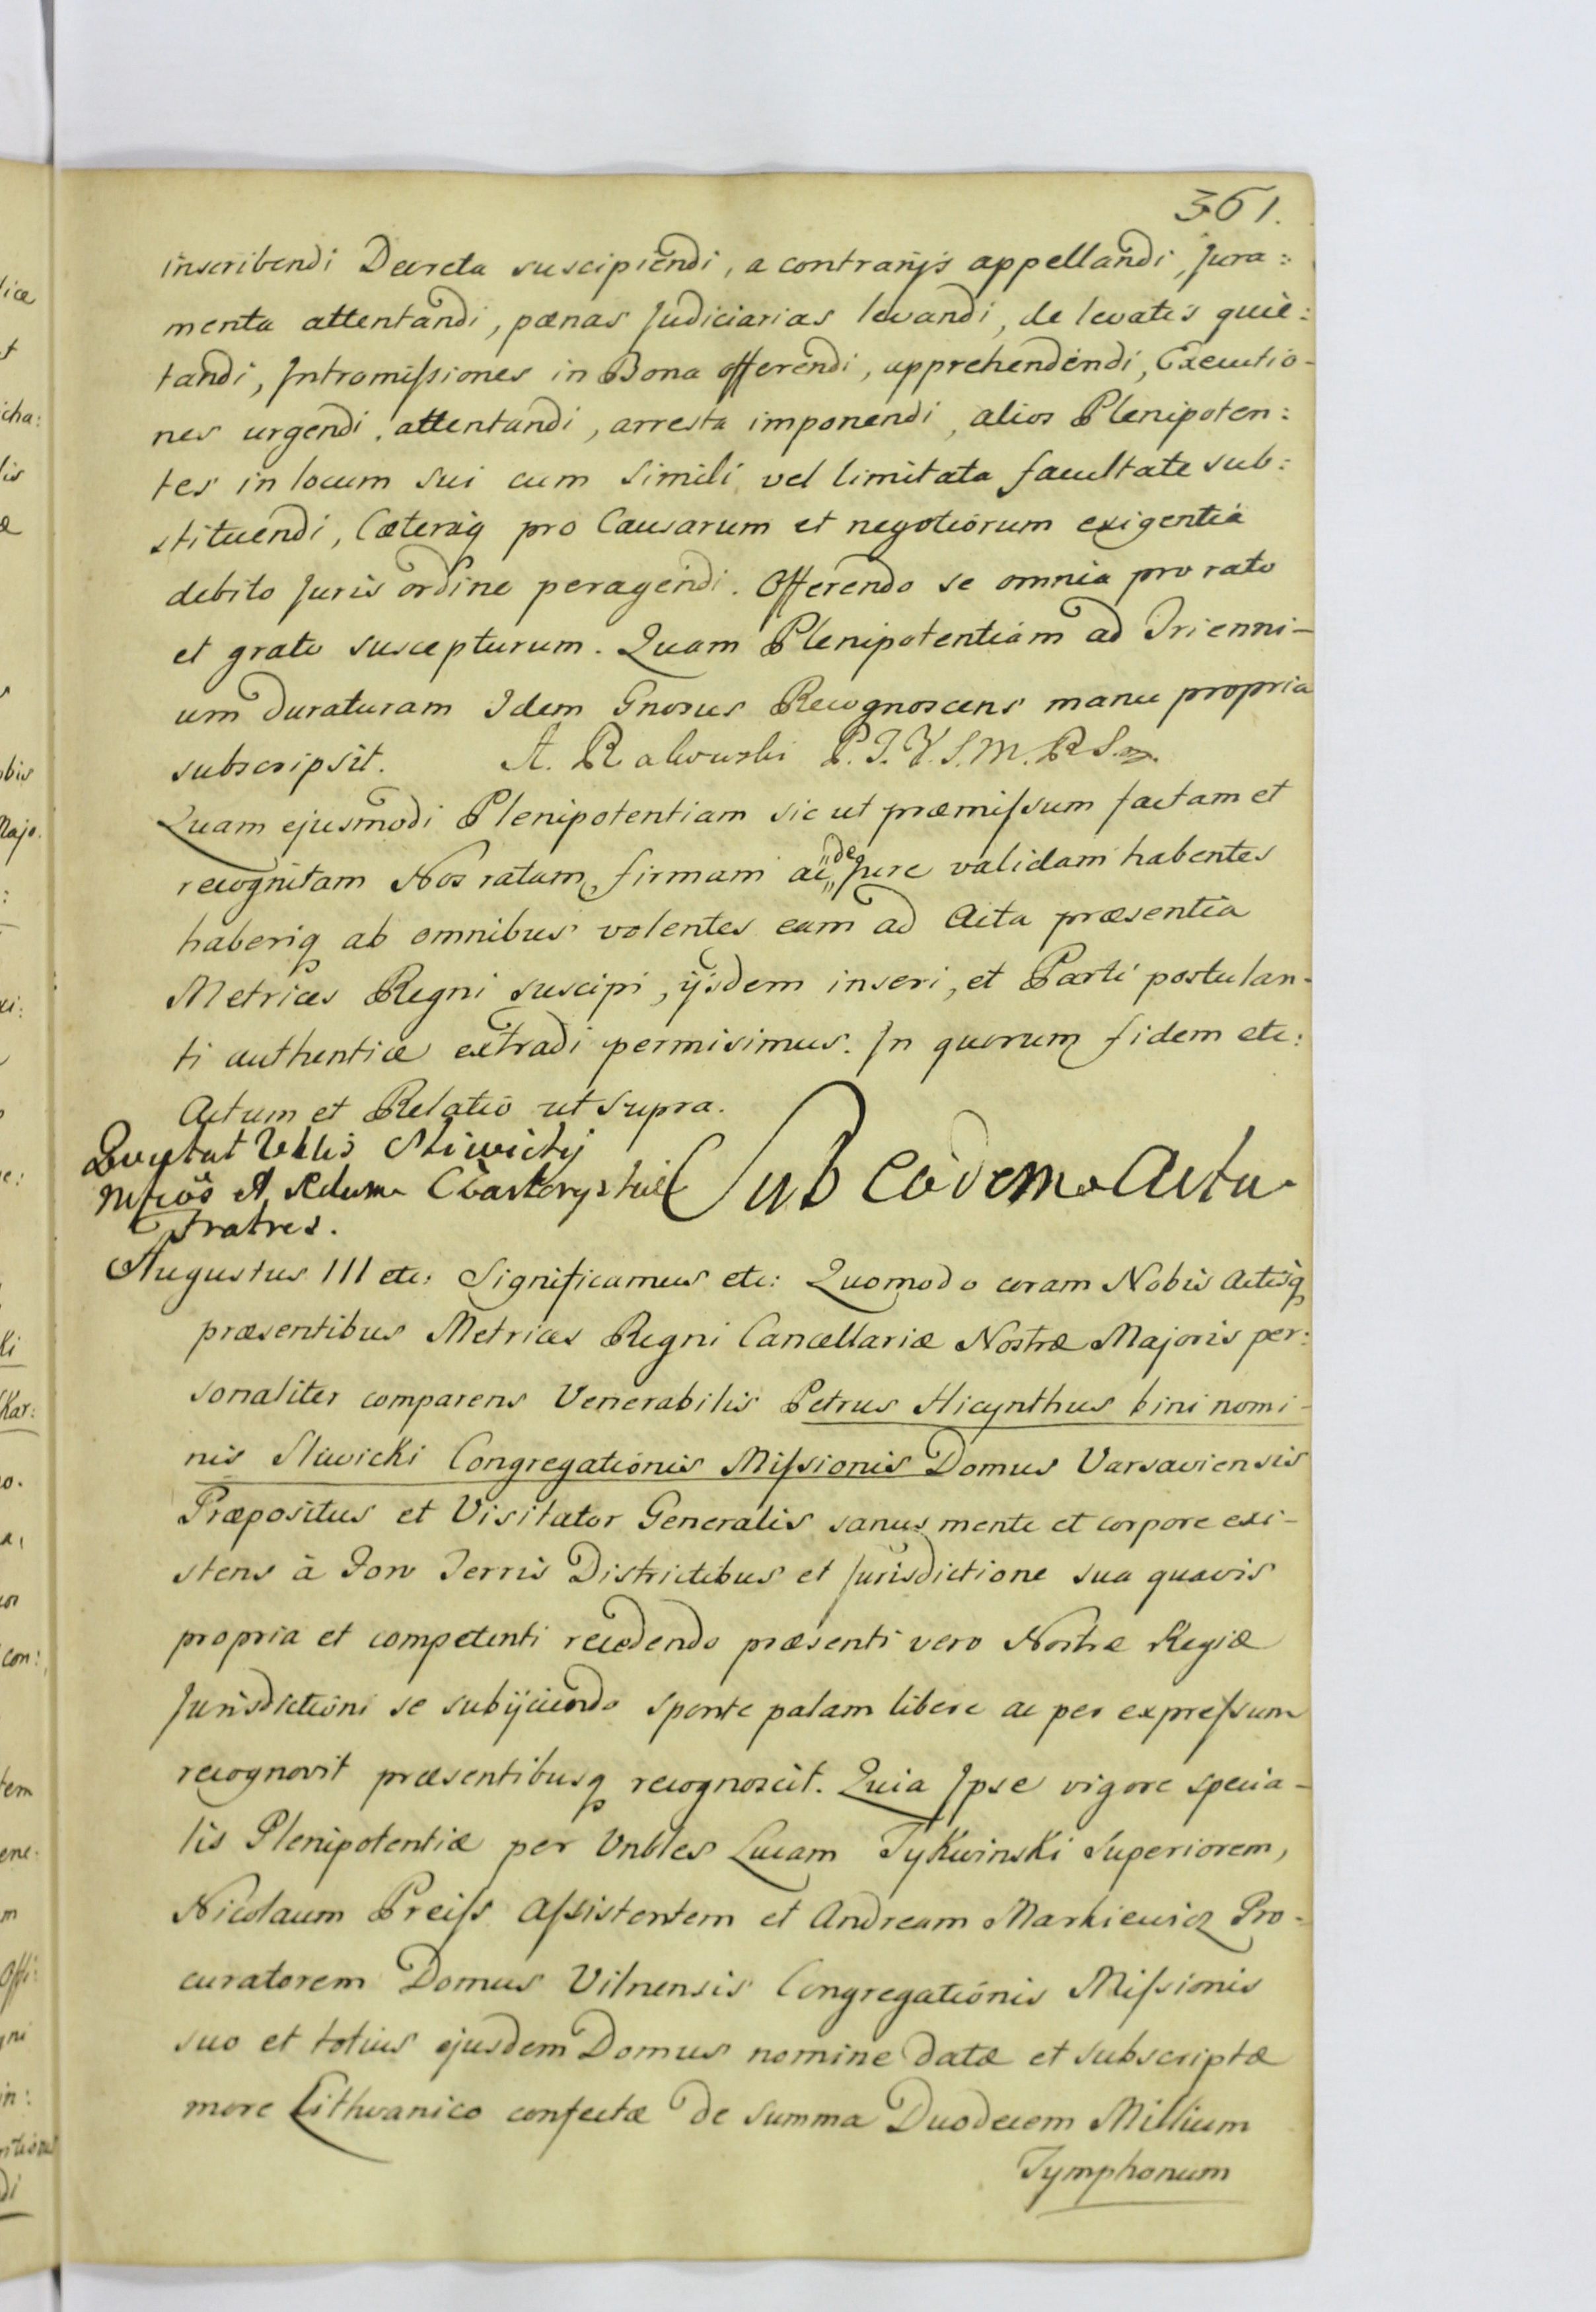 361.
inscribendi Decreta suscipiendi, a contrarijs appellandi, Jura:
menta attentandi, pœnas Judiciarias levandi, de levatis quie:
tandi, Intromiſsiones in Bona offerendi, apprehendendi, Executio-
nes urgendi, attentandi, arresta imponendi, alios Plenipoten:
tes in locum sui cum simili vel limitata facultate sub:
stituendi, Cæteraq pro Causarum et negotiorum exigentia
debito Juris ordine peragendi. Offerendo se omnia pro rato
et grato suscepturum. Quam Plenipotentiam ad Trienni-
um duraturam Idem Gnosus Recognoscens manu propria
subscripsit. A. Rakowski P. J. V. S. M. R S.
Quam ejusmodi Plenipotentiam sic ut præmiſsum factam et
recognitam Nos ratam, firmam ac de Jure validam habentes
haberiq ab omnibus volentes eam ad Acta præsentia
Metrices Regni suscipi, ijsdem inseri, et Parti postulan-
ti authentice extradi permisimus. In quorum fidem etc:
Actum et Relatio ut supra.
Quytat Vblis Sliwickj
Mfcos A. Adam Czartoryskie
Fratres.
Sub eodem Actu
Augustus III etc: Significamus etc: Quomodo coram Nobis Actisq
præsentibus Metrices Regni Cancellariæ Nostræ Majoris per:
sonaliter comparens Venerabilis Petrus Hicynthus bini nomi-
nis Sliwicki Congregationis Miſsionis Domus Varsaviensis
Præpositus et Visitator Generalis sanus mente et corpore exi-
stens à Foro Terris Districtibus et Jurisdictione sua quavis
propria et competenti recedendo præsenti vero Nostræ Regiæ
Jurisdictioni se subijciendo sponte palam libere ac per expreſsum
recognovit præsentibusq recognoscit. Quia Ipse vigore specia-
lis Plenipotentiæ per Vnbles Lucam Tykwinski Superiorem,
Nicolaum Preiſs Aſsistentem et Andream Markiewicz Pro-
curatorem Domus Vilnensis Congregationis Miſsionis
suo et totius ejusdem Domus nomine datæ et subscriptæ
more Lithvanico confectæ de summa Duodecem Millium
Tymphonum